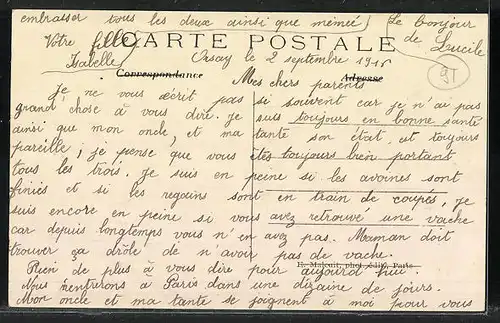 embrasser tous les deux ainsi que mémée
Le bonjour
de Lucile
Votre fille
Isabelle
CARTE POSTALE
Orsay le 2 septembre 1915
Correspondance
Adresse
91
Mes chers parents
Je ne vous écrit pas si souvent car je n'ai pas
grand chose à vous dire. Je suis toujours en bonne santé
ainsi que mon oncle, et ma tante son état est toujours
pareille; je pense que vous êtes toujours bien portant
tous les trois. Je suis en peine si les avoines sont
finiés et si les regains sont en train de coupés, je
suis encore en peine si vous avez retrouvé une vache
car depuis longtemps vous n'en avez pas. Maman doit
trouver ça drôle de n'avoir pas de vache.
Rien de plus à vous dire pour aujourd'hui.
phot. édit., Paris
Nous rentrerons à Paris dans une dizaine de jours.
Mon oncle et ma tante se joignent à moi pour vous